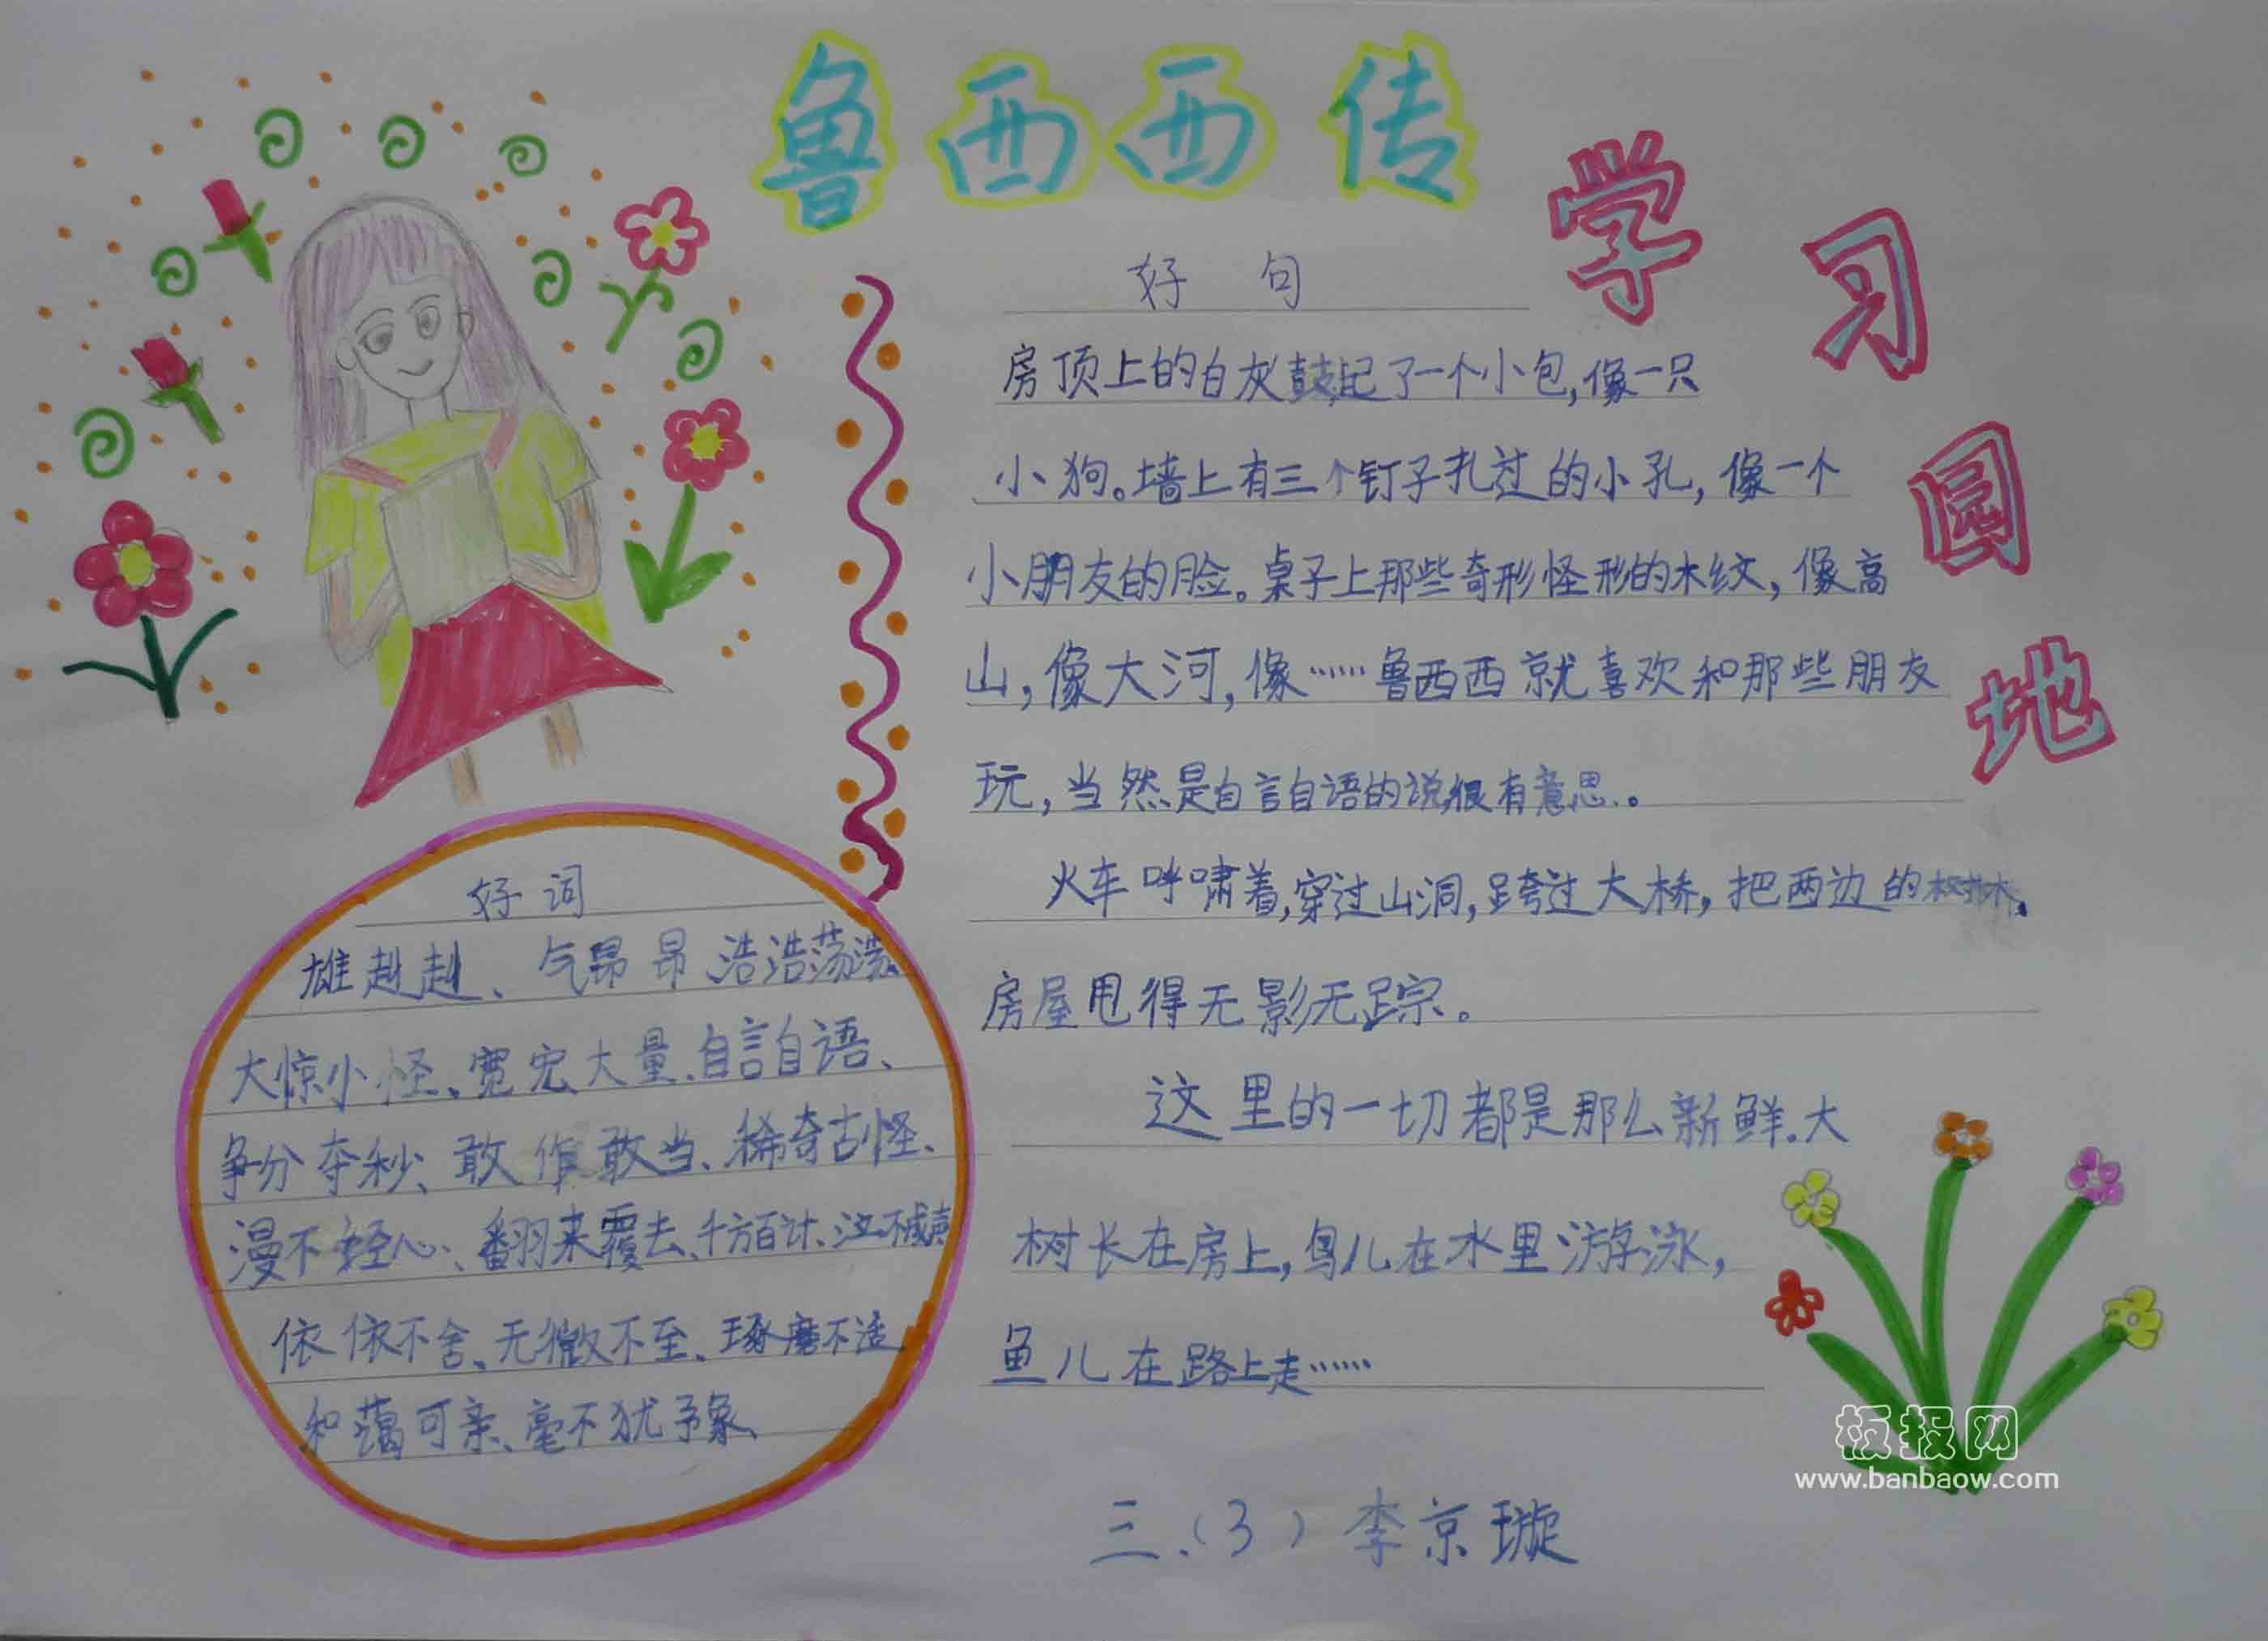 鲁西西传
学习园地
好句
房顶上的白灰鼓起了一个小包,像一只
小狗。墙上有三个钉子扎过的小孔,像一个
小朋友的脸。桌子上那些奇形怪形的木纹,像高
山,像大河,像……鲁西西就喜欢和那些朋友
玩,当然是自言自语的说很有意思。
火车呼啸着,穿过山洞,跨过大桥,把两边的树林,
房屋甩得无影无踪。
这里的一切都是那么新鲜.大
树长在房上,鸟儿在水里游泳,
鱼儿在路上走……
好词
雄赳赳、气昂昂、浩浩荡荡、
大惊小怪、宽宏大量、自言自语、
争分夺秒、敢作敢当、稀奇古怪、
漫不经心、翻来覆去、千方百计、
依依不舍、无微不至、琢磨不透
和蔼可亲、毫不犹予象、
三.(3)李京璇
板报网
www.banbaow.com